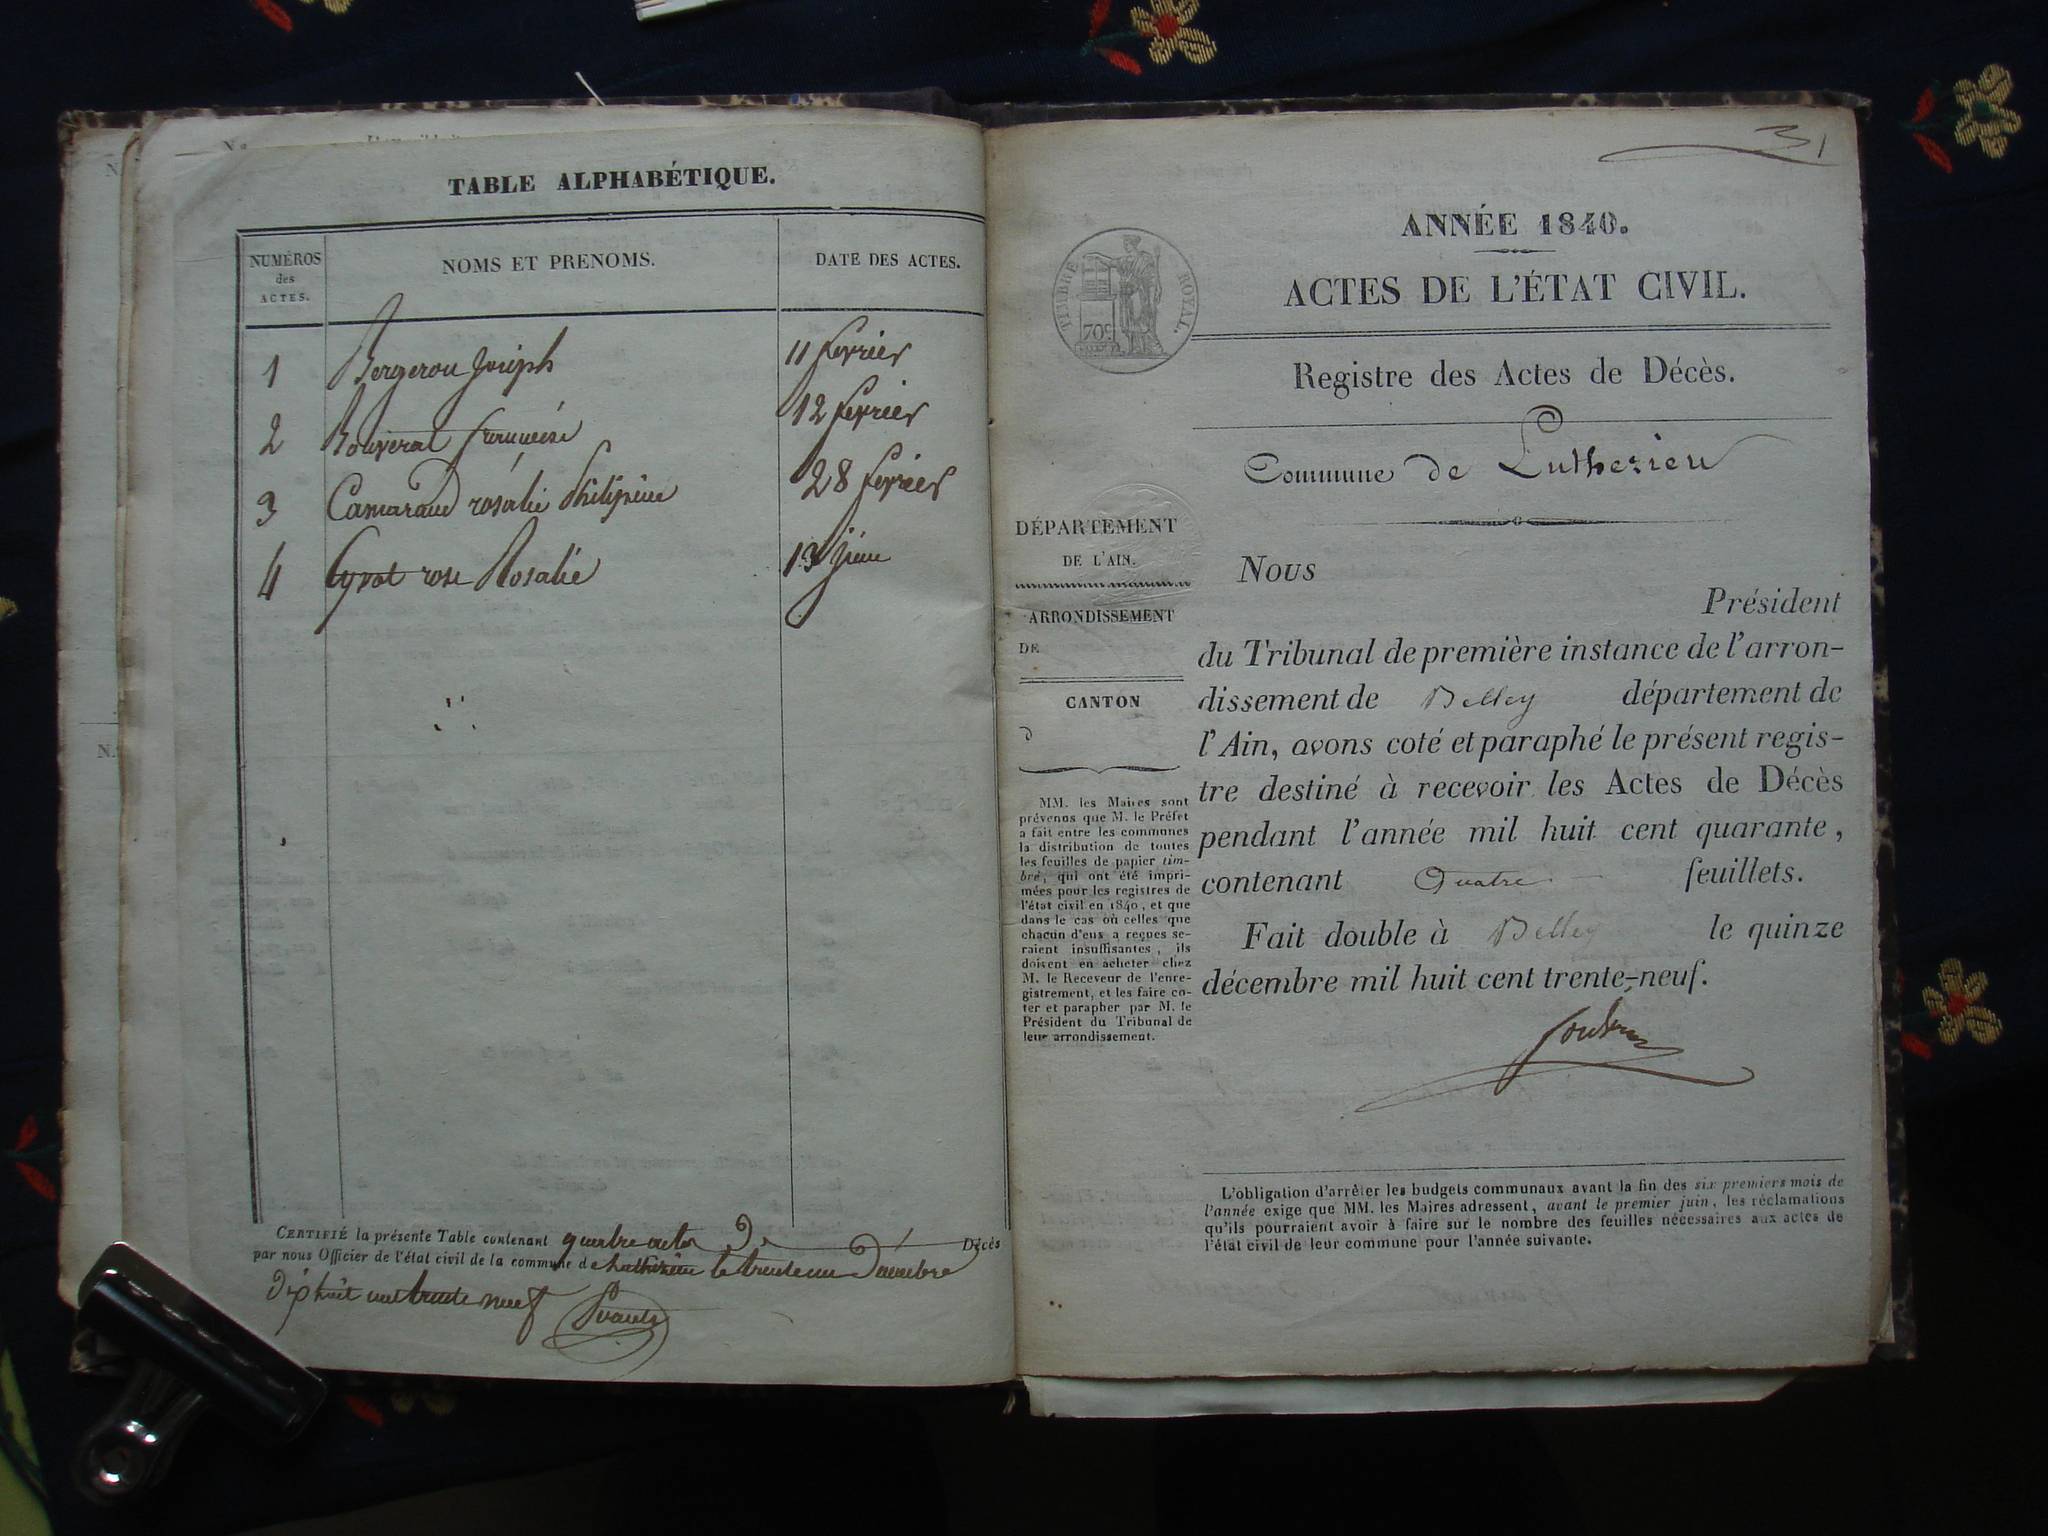 TABLE ALPHABÉTIQUE.
NUMÉROS
des
ACTES.
NOMS ET PRENOMS.
DATE DES ACTES.
1 Bergeron Joseph 11 fevrier
2 Bouverat françoise 12 fevrier
3 Camaraud rosalie Philipine 28 fevrier
4 Cyvot rose Rosalie 13 juin
CERTIFIÉ la présente Table contenant quatre actes De Décès
par nous Officier de l'état civil de la commune de Luthezieu le trente un Decembre
dix huit cent trente neuf
31
ANNÉE 1840.
ACTES DE L'ÉTAT CIVIL.
TIMBRE ROYAL.
70c
Registre des Actes de Décès.
Commune de Luthezieu
DÉPARTEMENT
DE L'AIN.
ARRONDISSEMENT
DE
CANTON
MM. les Maires sont
prévenus que M. le Préfet
a fait entre les communes
la distribution de toutes
les feuilles de papier tim-
bré, qui ont été impri-
mées pour les registres de
l'état civil en 1840, et que
dans le cas où celles que
chacun d'eux a reçues se-
raient insuffisantes, ils
doivent en acheter chez
M. le Receveur de l'enre-
gistrement, et les faire co-
ter et parapher par M. le
Président du Tribunal de
leur arrondissement.
Nous
Président
du Tribunal de première instance de l'arron-
dissement de Belley département de
l'Ain, avons coté et paraphé le présent regis-
tre destiné à recevoir les Actes de Décès
pendant l'année mil huit cent quarante,
contenant Quatre feuillets.
Fait double à Belley le quinze
décembre mil huit cent trente-neuf.
L'obligation d'arrêter les budgets communaux avant la fin des six premiers mois de
l'année exige que MM. les Maires adressent, avant le premier juin, les réclamations
qu'ils pourraient avoir à faire sur le nombre des feuilles nécessaires aux actes de
l'état civil de leur commune pour l'année suivante.